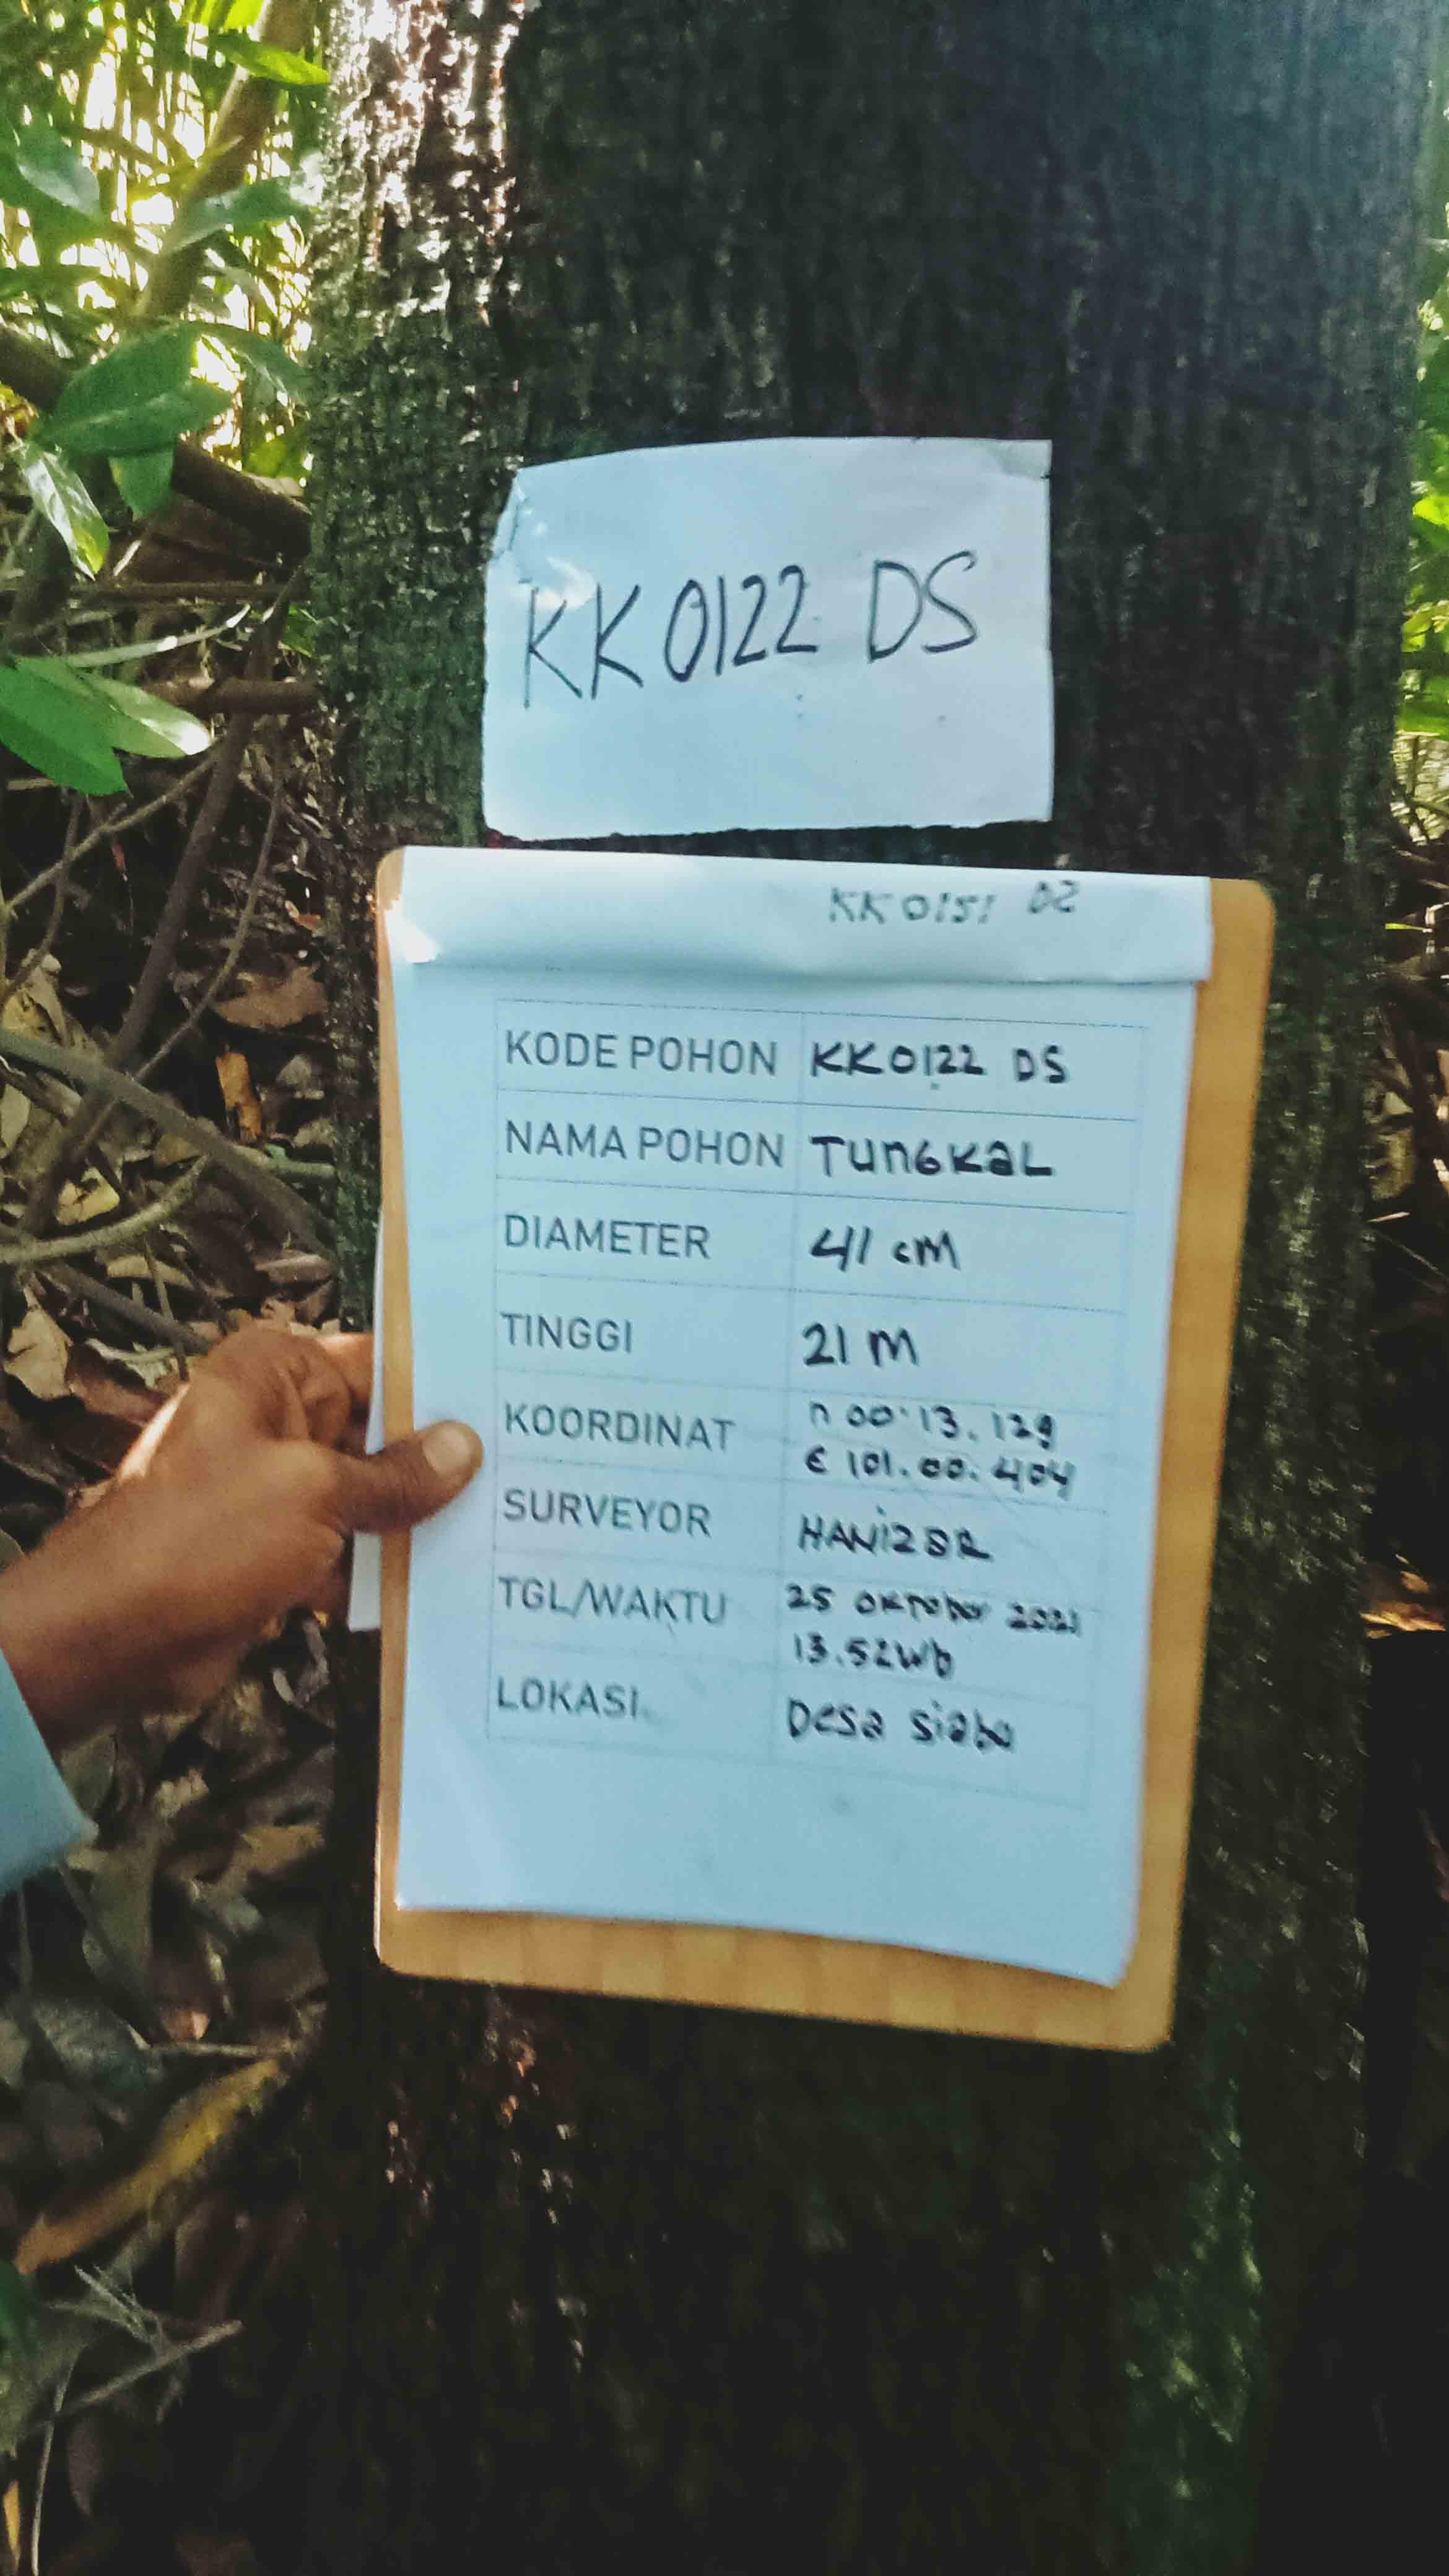 KK0122 DS
KK0151 DS
KODE POHON KK0122 DS
NAMA POHON TUnGKaL
DIAMETER 41 cM
TINGGI 21 M
KOORDINAT n 00°13.129
E 101.00.404
SURVEYOR HANiZaR
TGL/WAKTU 25 oktober 2021
13.52Wb
LOKASI Desa siabu